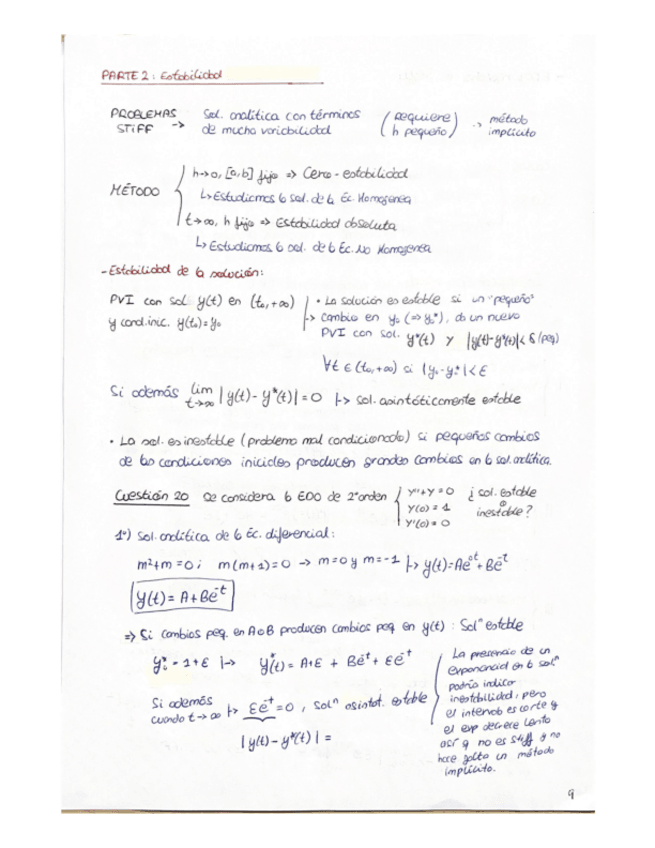 PARTE 2: Estabilidad
PROBLEMAS STIFF -> Sol. analítica con términos de mucha variabilidad (requiere h pequeño) -> método implícito
MÉTODO
h->0, [a,b] fijo => Cero-estabilidad
↳ Estudiamos la sol. de la Ec. Homogenea
t->∞, h fijo => Estabilidad absoluta
↳ Estudiamos la sol. de la Ec. No Homogenea
- Estabilidad de la solución:
PVI con sol y(t) en (t₀,+∞)
y cond. inic. y(t₀)=y₀
• La solución es estable si un "pequeño"
cambio en y₀ (=> y₀*), da un nuevo
PVI con sol. y*(t) y |y(t)-y*(t)|<δ (peq)
∀t ∈ (t₀,+∞) si |y₀-y₀*|<ε
Si además lim t->∞ |y(t)-y*(t)|=0 |-> sol. asintóticamente estable
• La sol. es inestable (problema mal condicionado) si pequeños cambios
de las condiciones iniciales producen grandes cambios en la sol. analítica.
Cuestión 20 Se considera la EDO de 2º orden { y''+y'=0 ¿ sol. estable
y(0)=1 o inestable?
y'(0)=0
1º) Sol. analítica de la Ec. diferencial:
m²+m=0; m(m+1)=0 -> m=0 y m=-1 |-> y(t)=Ae⁰ᵗ+Be⁻ᵗ
y(t)=A+Be⁻ᵗ
=> Si cambios peq. en A o B producen cambios peq en y(t): Solⁿ estable
y₀*=1+ε |-> y*(t)=A+ε+Be⁻ᵗ+εe⁻ᵗ
Si además cuando t->∞ |-> εe⁻ᵗ=0, solⁿ asintot. estable
|y(t)-y*(t)|=
La presencia de un
exponencial en la solⁿ
podría indicar
inestabilidad, pero
el intervalo es corto y
el exp decrece lento
así q no es stiff y no
hace falta un método
implícito.
9